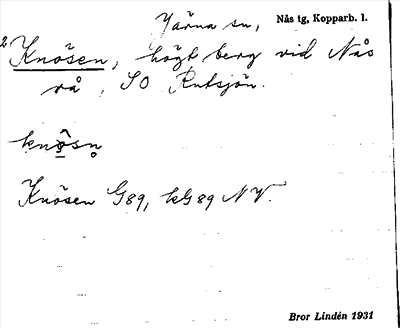 Järna sn, Nås tg, Kopparb. l.
2 Knösen, högt berg vid Nås
rå, SO Rutsjön.
knô̱sn̥
Knösen G89, kG89 NV.
Bror Lindén 1931